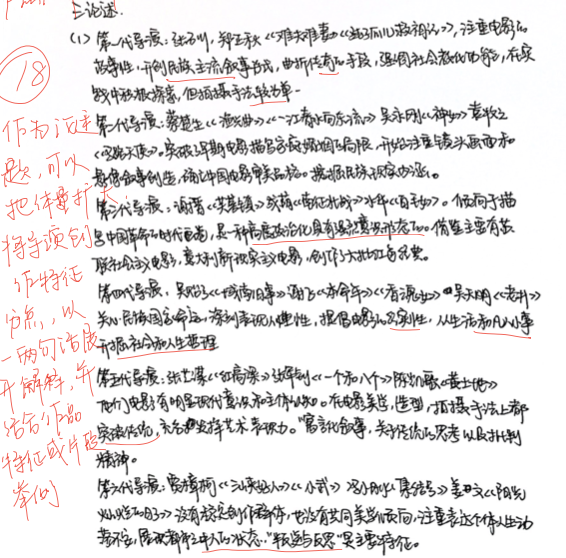 三.论述.
(1) 第一代导演：张石川，郑正秋<<难夫难妻>><<孤儿救祖记>>，注重电影的
故事性，开创民族主流叙事方式，曲折传奇的手段，强调社会教化功能，在实
践中积极探索，但拍摄手法较为单一
第二代导演：蔡楚生<<渔光曲>><<一江春水向东流>>吴永刚<<神女>>袁牧之
<<马路天使>>。突破早期电影描写家庭婚姻的局限，开始注重镜头画面术
第三代导演：谢晋<<芙蓉镇>>成荫<<南征北战>>水华<<白毛女>>。倾向于描
写中国革命的时代画卷，是一种高度政治化具有强烈意识形态的。借鉴主要有苏
联社会主义电影，意大利新现实主义电影，创作了大批红色经典。
第四代导演：吴贻弓<<城南旧事>>谢飞<<本命年>><<香魂女>>吴天明<<老井>>
关心民族国家命运，深刻表现人道性，提倡电影纪实性，从生活和凡人小事
开掘社会和人生哲理
第五代导演：张艺谋<<红高粱>>张军钊<<一个和八个>>陈凯歌<<黄土地>>
他们电影有明显现代意识和主体认知。在电影美学，造型，拍摄手法上都
突破传统，充分发挥艺术表现力。"寓言化叙事，关于传统的思考以及批判
精神。
第六代导演：贾樟柯<<三峡好人>><<小武>>冯小刚<<集结号>>姜文<<阳光
灿烂的日子>>没有稳定创作群体，也没有共同美学倾向，注重表达个体人生动
荡不安，展现都市中人的状态，"叛逆与反思"是主要特征。
18
作为论述
题，可以
把体量扩大
将导演创
作特征
分点，以
一两句话展
开解释，并
结合作品
特征或片段
举例